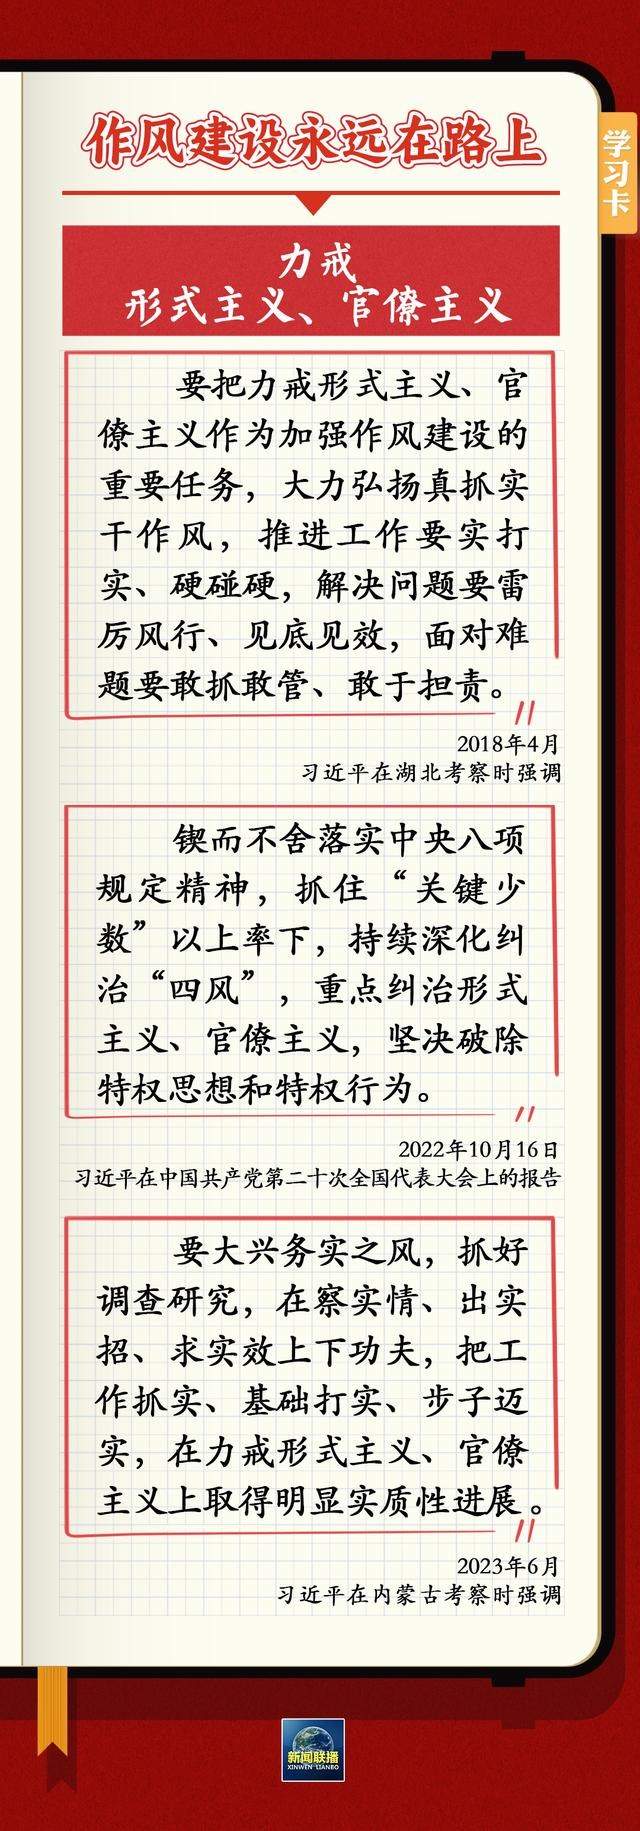 作风建设永远在路上
学习卡
力戒
形式主义、官僚主义
要把力戒形式主义、官
僚主义作为加强作风建设的
重要任务，大力弘扬真抓实
干作风，推进工作要实打
实、硬碰硬，解决问题要雷
厉风行、见底见效，面对难
题要敢抓敢管、敢于担责。
2018年4月
习近平在湖北考察时强调
锲而不舍落实中央八项
规定精神，抓住“关键少
数”以上率下，持续深化纠
治“四风”，重点纠治形式
主义、官僚主义，坚决破除
特权思想和特权行为。
2022年10月16日
习近平在中国共产党第二十次全国代表大会上的报告
要大兴务实之风，抓好
调查研究，在察实情、出实
招、求实效上下功夫，把工
作抓实、基础打实、步子迈
实，在力戒形式主义、官僚
主义上取得明显实质性进展。
2023年6月
习近平在内蒙古考察时强调
新闻联播
XINWEN LIANBO